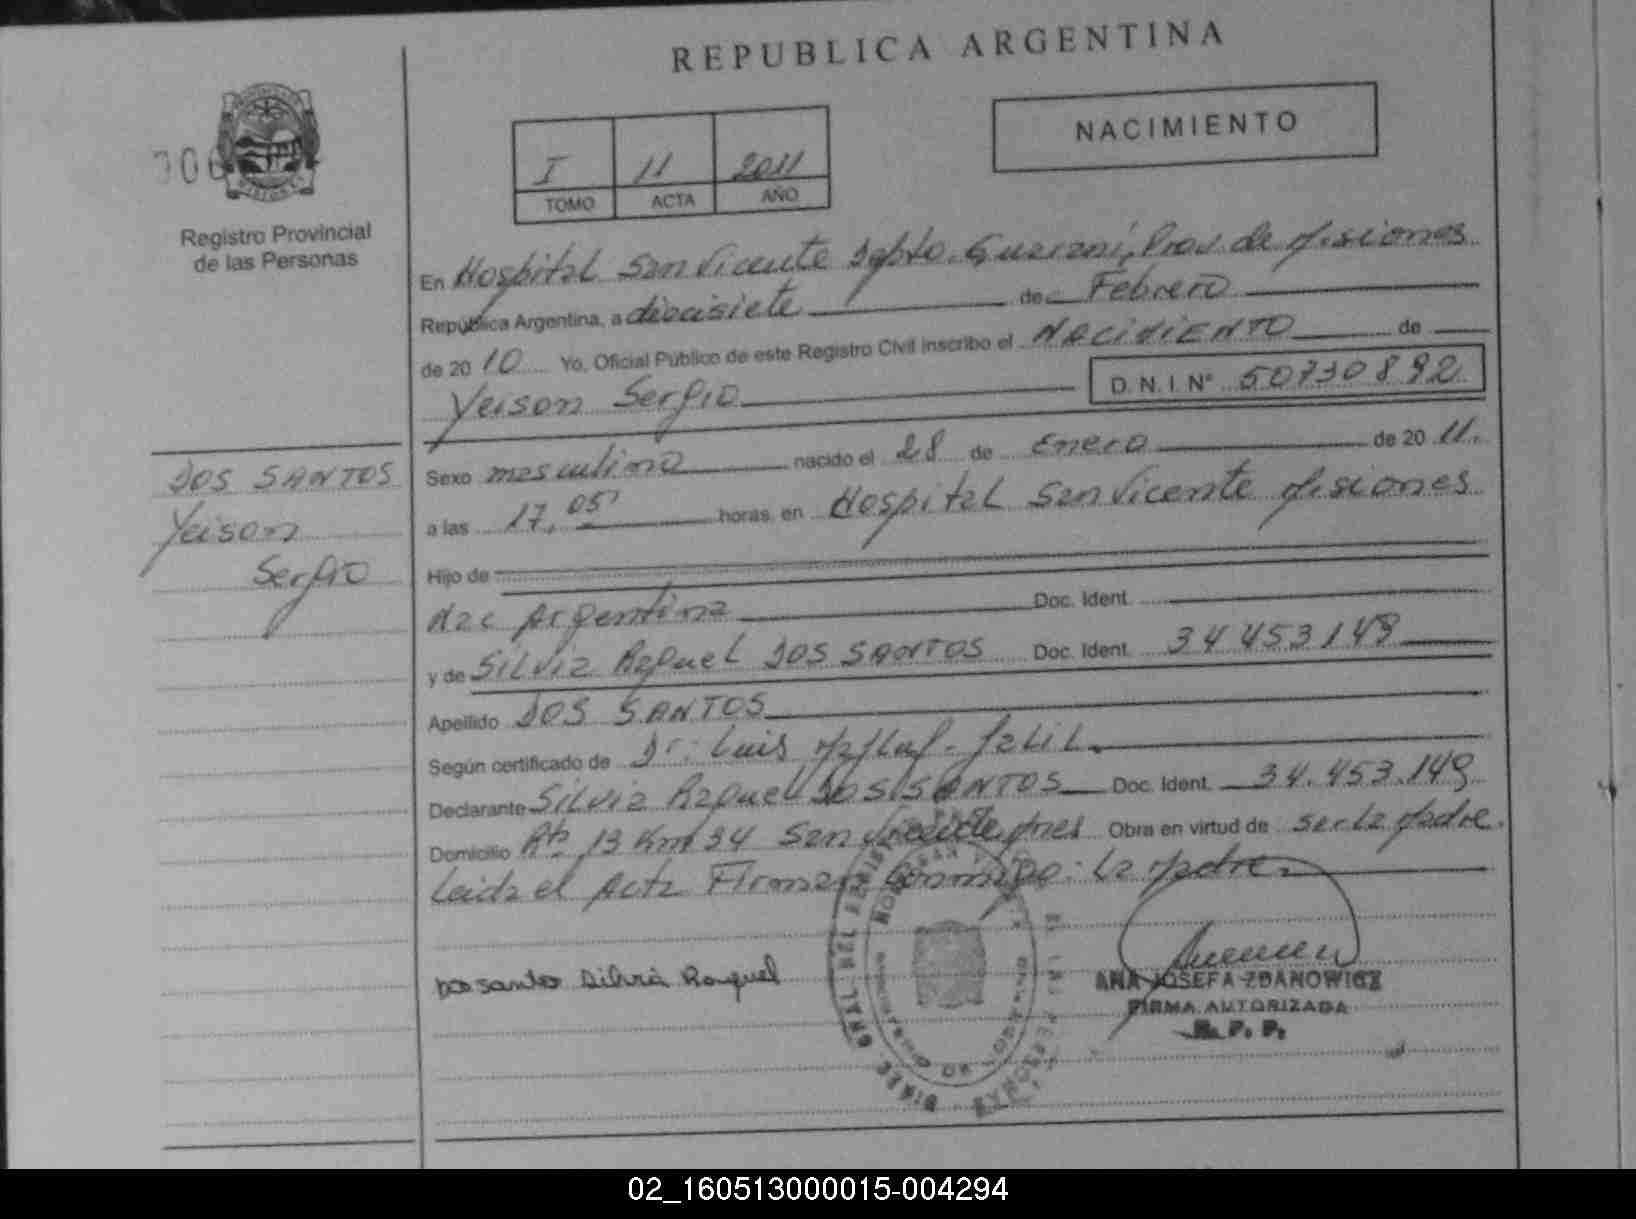 REPUBLICA ARGENTINA
NACIMIENTO
I 11 2011
TOMO ACTA AÑO
Registro Provincial
de las Personas
En Hospital San Vicente Dpto. Guarani, Prov. de Misiones
República Argentina, a diecisiete de Febrero
de 2010 Yo, Oficial Público de este Registro Civil inscribo el NACIMIENTO de
Yeison Sergio D.N.I. N° 50730892
DOS SANTOS
Yeison
Sergio
Sexo masculino nacido el 28 de Enero de 2011.
a las 17,05' horas, en Hospital San Vicente Misiones
Hijo de
Nac Argentina Doc. Ident.
y de Silvia Raquel DOS SANTOS Doc. Ident. 34453149
Apellido DOS SANTOS
Según certificado de Dr: Luis
Declarante Silvia Raquel DOS SANTOS Doc. Ident. 34.453.149
Domicilio Rta 13 Km 34 San Vicente Mnes Obra en virtud de ser la Madre.
Leida el Acta Firman Conmigo: La Madre
Dos santos Silvia Raquel
ANA JOSEFA ZDANOWICZ
FIRMA AUTORIZADA
R. P. P.
02_160513000015-004294